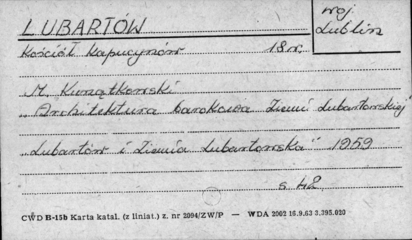 LUBARTÓW
woj
Lublin
Kościół Kapucynów 18 w.
M. Kwiatkowski
„Architektura barokowa Ziemi Lubartowskiej"
„Lubartów i Ziemia Lubartowska" 1959
s. 42
CWD B-15b Karta katal. (z liniat.) z. nr 2094/ZW/P — WDA 2002 16.9.63 3.395.020